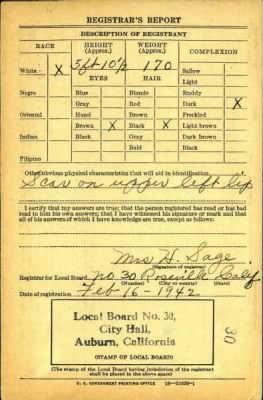 REGISTRAR'S REPORT
DESCRIPTION OF REGISTRANT
RACE HEIGHT (Approx.) WEIGHT (Approx.) COMPLEXION
White X 5ft 10½ 170 Sallow
EYES HAIR Light
Negro Blue Blonde Ruddy
Gray Red Dark X
Oriental Hazel Brown Freckled
Brown X Black X Light brown
Indian Black Gray Dark brown
Bald Black
Filipino
Other obvious physical characteristics that will aid in identification
Scar on upper left lip
I certify that my answers are true; that the person registered has read or has had
read to him his own answers; that I have witnessed his signature or mark and that
all of his answers of which I have knowledge are true, except as follows:
Mrs H. Sage
(Signature of registrar)
Registrar for Local Board No. 30 Roseville Calif
(Number) (City or county) (State)
Date of registration Feb-16-1942
Local Board No. 30,
City Hall,
Auburn, California
(STAMP OF LOCAL BOARD)
30
(The stamp of the Local Board having jurisdiction of the registrant
shall be placed in the above space)
U. S. GOVERNMENT PRINTING OFFICE